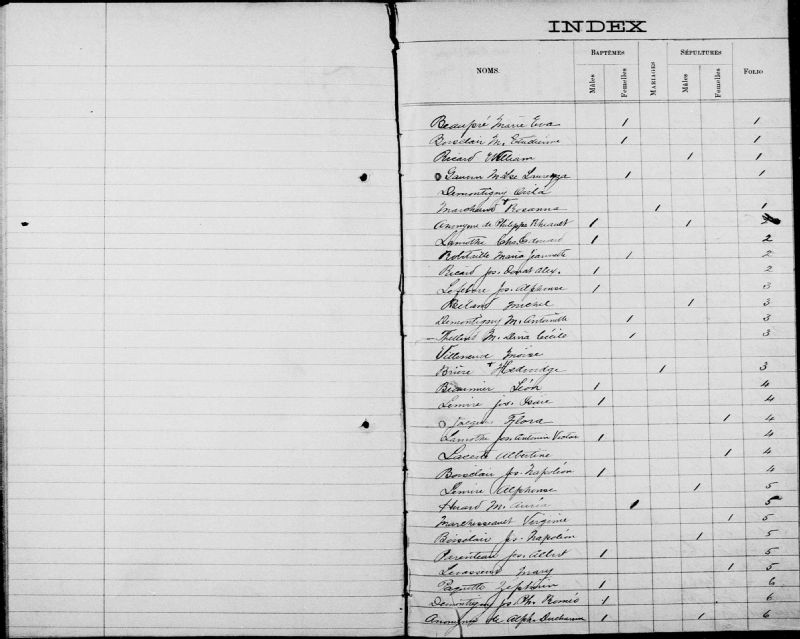 INDEX
NOMS. BAPTÊMES MARIAGES SÉPULTURES FOLIO
Mâles Femelles Mâles Femelles
Beaupré Marie Eva 1 1
Boisclair M. 1 1
Ricard William 1 1
Gauvin 1 1
Demontigny
Marchand + Rosanna 1 1
Anonyme de Philippe 1 1 2
Lamothe Chs. Edouard 1 2
Robitaille Maria Jeannette 1 2
Ricard Jos. Donat Alex. 1 2
Lefebvre Jos. Alphonse 1 3
Michel 1 3
Demontigny M. Antoinette 1 3
M. Dena Cécile 1 3
Villeneuve Moïse
Brière + Hedwidge 1 3
Léon 1 4
Lemire Jos. Isaïe 1 4
Jacques Flora 1 4
Lamothe Jos. Antonin Victor 1 4
Lacerte Albertine 1 4
Boisclair Jos. Napoléon 1 4
Lemire Alphonse 1 5
M. 1 5
Marchesseault Virginie 1 5
Boisclair Jos. Napoléon 1 5
Parenteau Jos. Albert 1 5
Levasseur Mary 1 5
Paquette Zéphirin 1 6
Demontigny Jos. Ph. Roméo 1 6
Anonyme de Alph. Ducharme 1 1 6